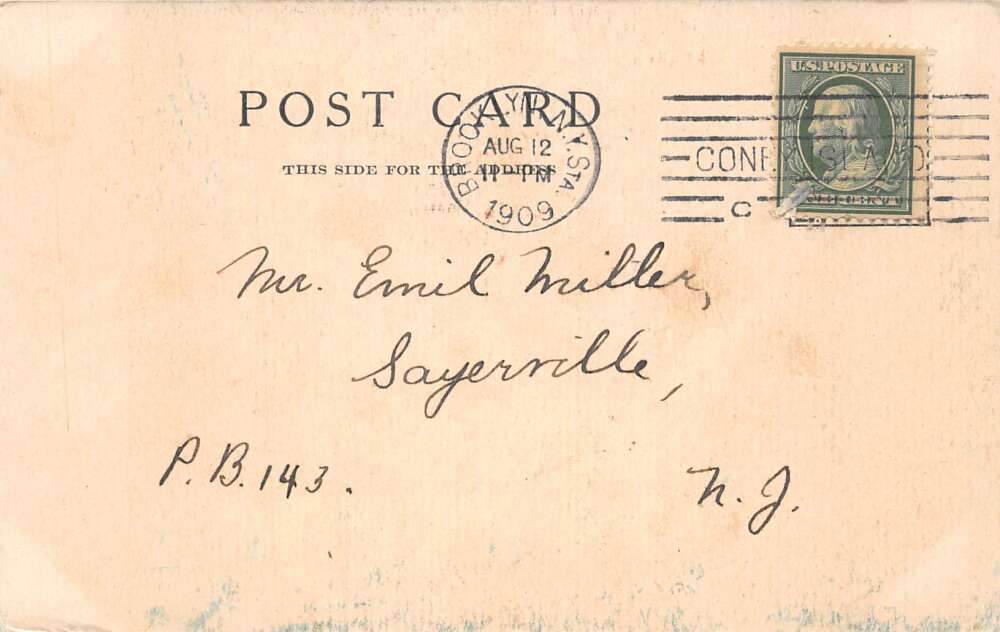 U.S. POSTAGE
POST CARD
THIS SIDE FOR THE ADDRESS
BROOKLYN, N.Y. STA.
AUG 12
11-PM
1909
CONEY ISLAND
C
Mr. Emil Miller,
Sayerville,
P.B. 143.
N.J.